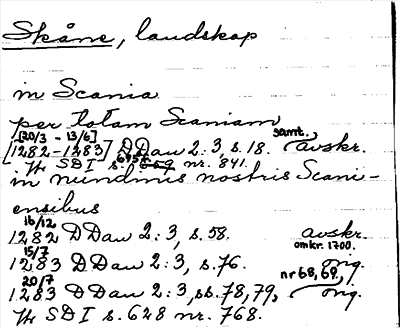 Skåne, landskap
in Scania
per totam Scaniam
[20/3 - 13/6] samt.
[1282-1283] DDan 2:3, s.18. avskr.
Tr SDI s. 695 f. nr. 841.
in nundinis nostris Scani-
ensibus
16/12 avskr.
1282 DDan 2:3, s.58. omkr. 1700.
15/7
1283 DDan 2:3, s.76. orig.
20/7 nr 68, 69,
1283 DDan 2:3, ss.78, 79, orig.
Tr SDI s.628 nr.768.